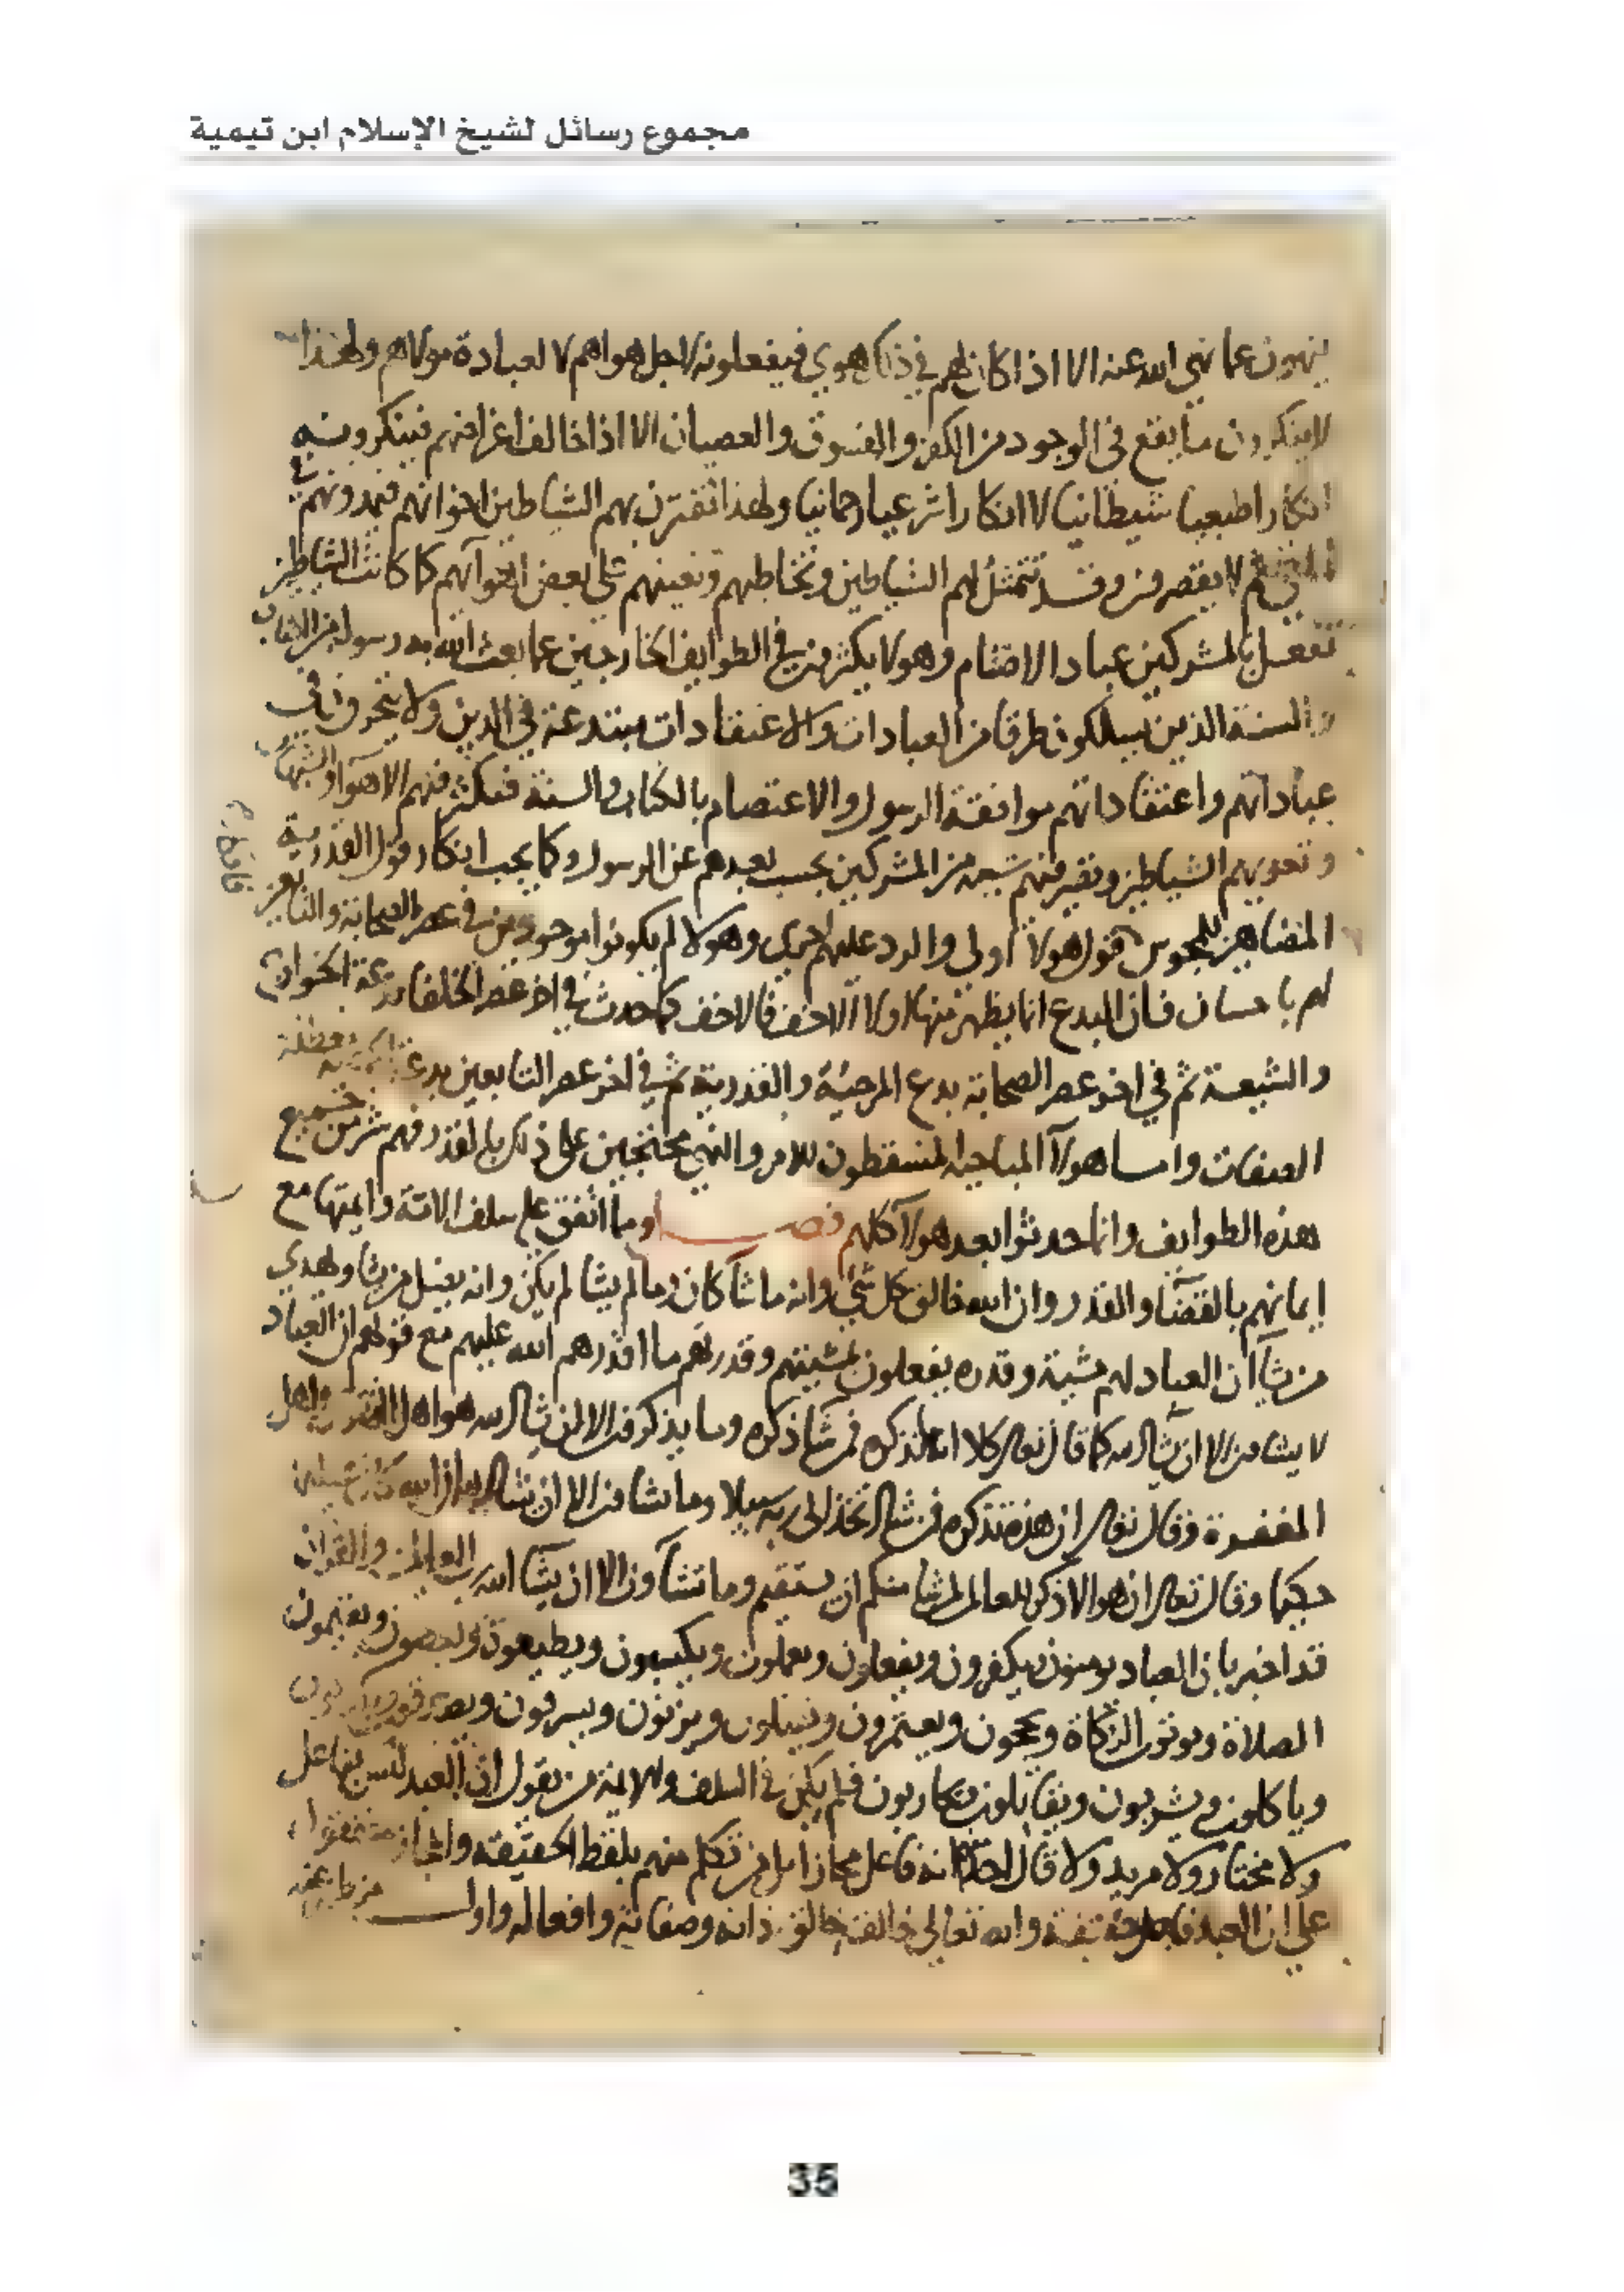 مجموع رسائل لشيخ الإسلام ابن تيمية
ينهون عما نهى الله عنه الا اذا كان لهم في ذلك هوي فيفعلونه لاجل هواهم لا لعبادة مولاهم ولهذا
لا ينكرون ما يقع في الوجود من الكفر والفسوق والعصيان الا اذا خالف اغراضهم فينكرونه
انكارا طبعيا شيطانيا لا انكارا شرعيا رحمانيا ولهذا تقترن بهم الشياطين اخوانهم فيمدونهم في
الغي ثم لا يقصرون وقد تتمثل لهم الشياطين وتخاطبهم وتعينهم على بعض اهوآئهم كما كانت الشياطين
تفعل بالمشركين عباد الاصنام وهولا يكثرون في الطوايف الخارجين عما بعث الله به رسوله من الكتاب
والسنة الذين يسلكون طرقا من العبادات والاعتقادات مبتدعة في الدين ولا يتحرون في
عباداتهم واعتقاداتهم موافقة الرسول والاعتصام بالكتاب والسنة فتكثر فيهم الاهوآ والشبهات
وتغويهم الشياطين وتصير فيهم شبه من المشركين بحسب بعدهم عن الرسول وكما يجب انكار قول القدرية
المضاهين للمجوس قول هولا اولى والرد عليهم احرى وهولا لم يكونوا موجودين في عصر الصحابة والتابعين
لهم باحسان فان البدع انما يظهر منها اولا الاخف فالاخف كما حدث في اخر عصر الخلفا بدعة الخوارج
والشيعة ثم في اخر عصر الصحابة بدع المرجئة والقدرية ثم في اخر عصر التابعين بدعة معطلة
الصفات واما هولآ المباحية المسقطون للامر والنهي محتجين على ذلك بالقدر فهم شر من جميع
هذه الطوايف وانما حدثوا بعد هولآ كلهم فصل وما اتفق عليه سلف الامة وايمتها مع
ايمانهم بالقضا والقدر وان الله خالق كل شي وانه ما شآ كان وما لم يشا لم يكن وانه يضل من يشا ويهدي
من يشآ ان العباد لهم مشية وقدرة يفعلون بمشيتهم وقدرتهم ما اقدرهم الله عليهم مع قولهم ان العباد
لا يشاءون الا ان يشا الله كما قال تعالى كلا انه تذكرة فمن شآ ذكره وما يذكرون الا ان يشا الله هو اهل التقوى واهل
المغفرة وقال تعالى ان هذه تذكرة فمن شا اتخذ الى ربه سبيلا وما تشاون الا ان يشا الله ان الله كان عليما
حكيما وقال تعالى ان هو الا ذكر للعالمين لمن شا منكم ان يستقيم وما تشآون الا ان يشآ الله رب العالمين والقران
قد اخبر بان العباد يومنون ويكفرون ويفعلون ويعملون ويكسبون ويطيعون ويعصون ويقيمون
الصلاة ويوتون الزكاة ويحجون ويعتمرون ويقتلون ويزنون ويسرقون ويصدقون ويكذبون
وياكلون ويشربون ويقاتلون ويحاربون فلم يكن في السلف والايمة من يقول ان العبد ليس بفاعل
ولا مختار ولا مريد ولا قال احد منهم انه فاعل مجازا بل من تكلم منهم بلفظ الحقيقة والمجاز متفقون
على ان العبد فاعل حقيقة والله تعالى خالقه خالق ذاته وصفاته وافعاله واول من
35